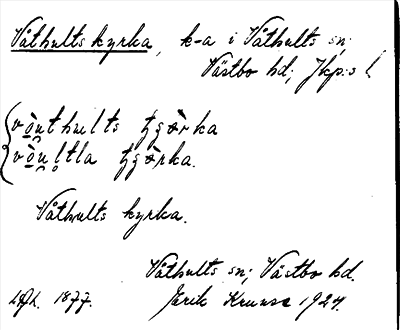 Våthults kyrka, k-a i Våthults sn;
Västbo hd; Jkp:s l
vòuthults tʒærka
vòu̥ltla tʒærka.
Våthults kyrka.
Våthults sn; Västbo hd.
1877. Jarik Kruuse 1924.